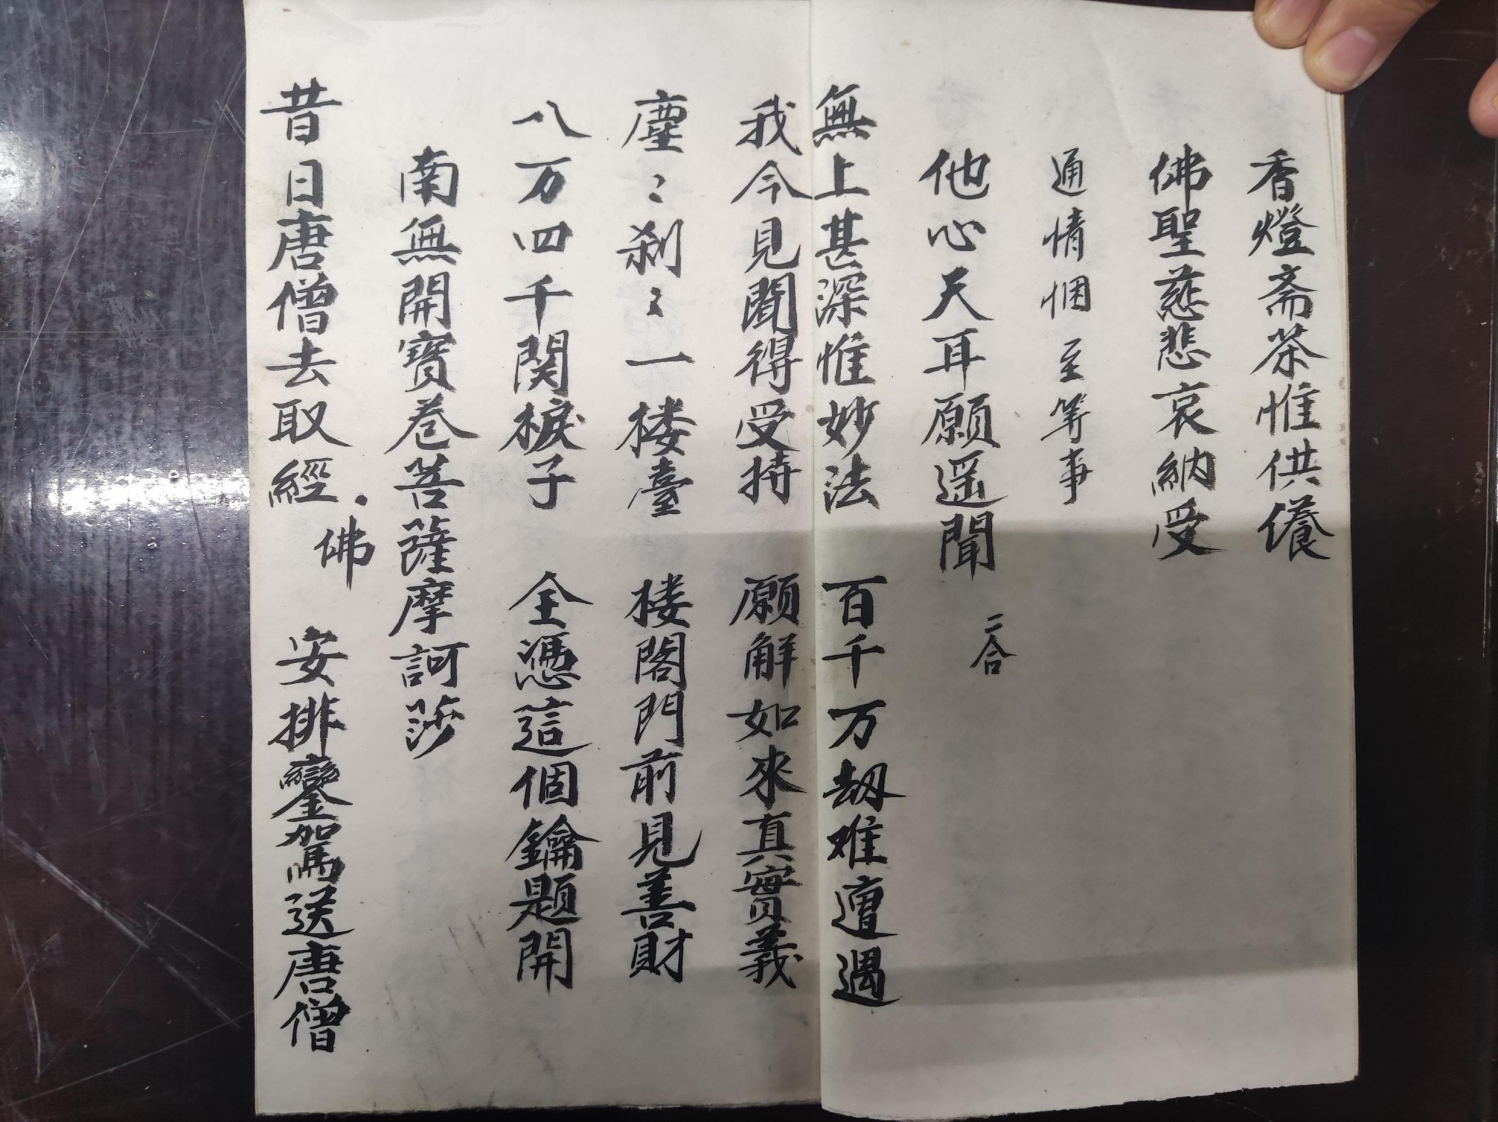 香燈斋茶惟供儀
佛聖慈悲哀納受
通情悃至等事
他心天耳願遥聞
二合
無上甚深惟妙法 百千万劫难遭遇
我今見聞得受持 願解如來真實義
塵〻刹〻一楼臺 楼閣門前見善財
八万四千関棙子 全憑這個鑰題開
南無開寶卷菩薩摩訶莎
昔日唐僧去取經.佛 安排鑾駕送唐僧